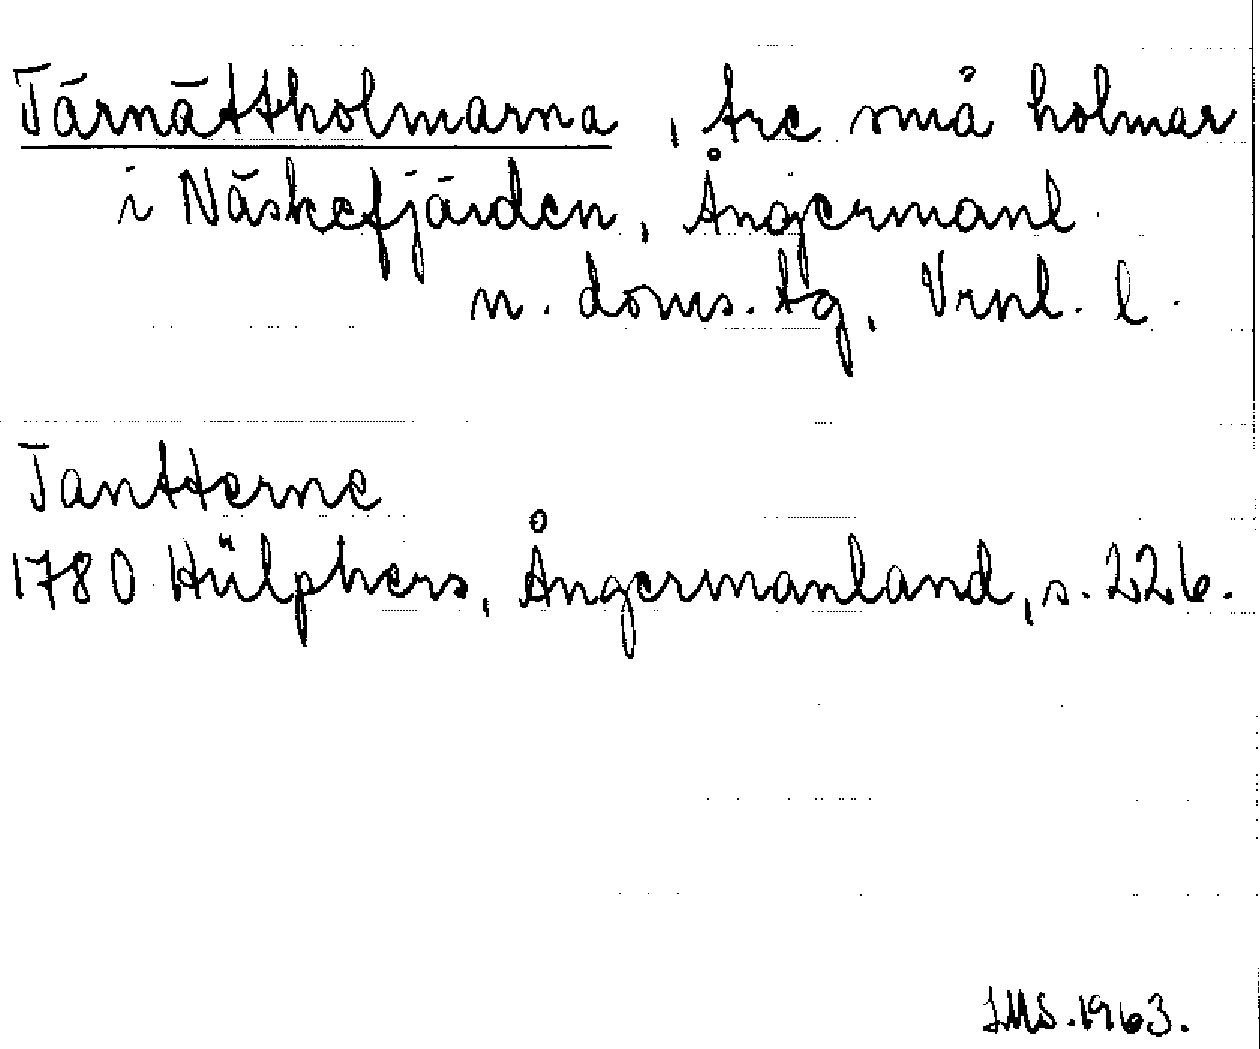 Tärnättholmarna, tre små holmar
i Näskefjärden, Ångermanl.
n. doms. tg, Vrnl. l.
Tantterne
1780 Hülphers, Ångermanland, s. 226.
IMS. 1963.